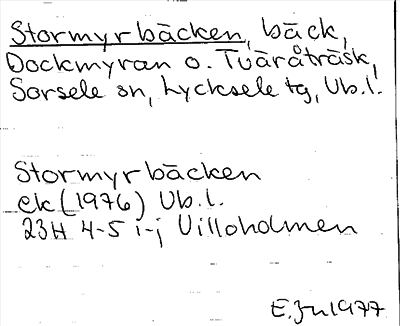 Stormyrbäcken, bäck,
Dockmyran o. Tväråträsk,
Sorsele sn, Lycksele tg, Vb.l.
Stormyrbäcken
ek (1976) Vb.l.
23H 4-5 i-j Villoholmen
1977